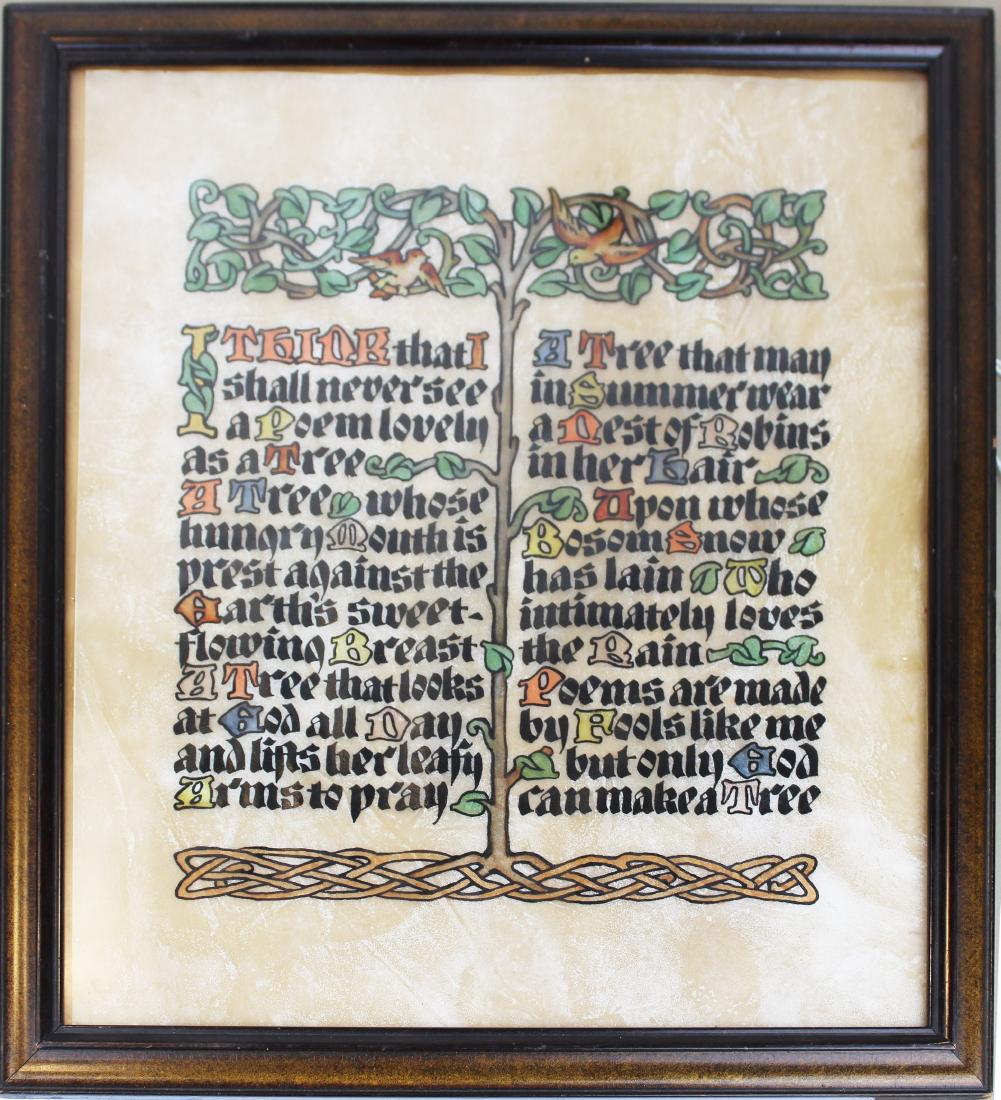 I THINK that I
shall never see
a Poem lovely
as a Tree
A Tree whose
hungry Mouth is
prest against the
Earth's sweet-
flowing Breast
A Tree that looks
at God all Day
and lifts her leafy
Arms to pray
A Tree that may
in Summer wear
a Nest of Robins
in her Hair
Upon whose
Bosom Snow
has lain Who
intimately loves
the Rain
Poems are made
by Fools like me
but only God
can make a Tree